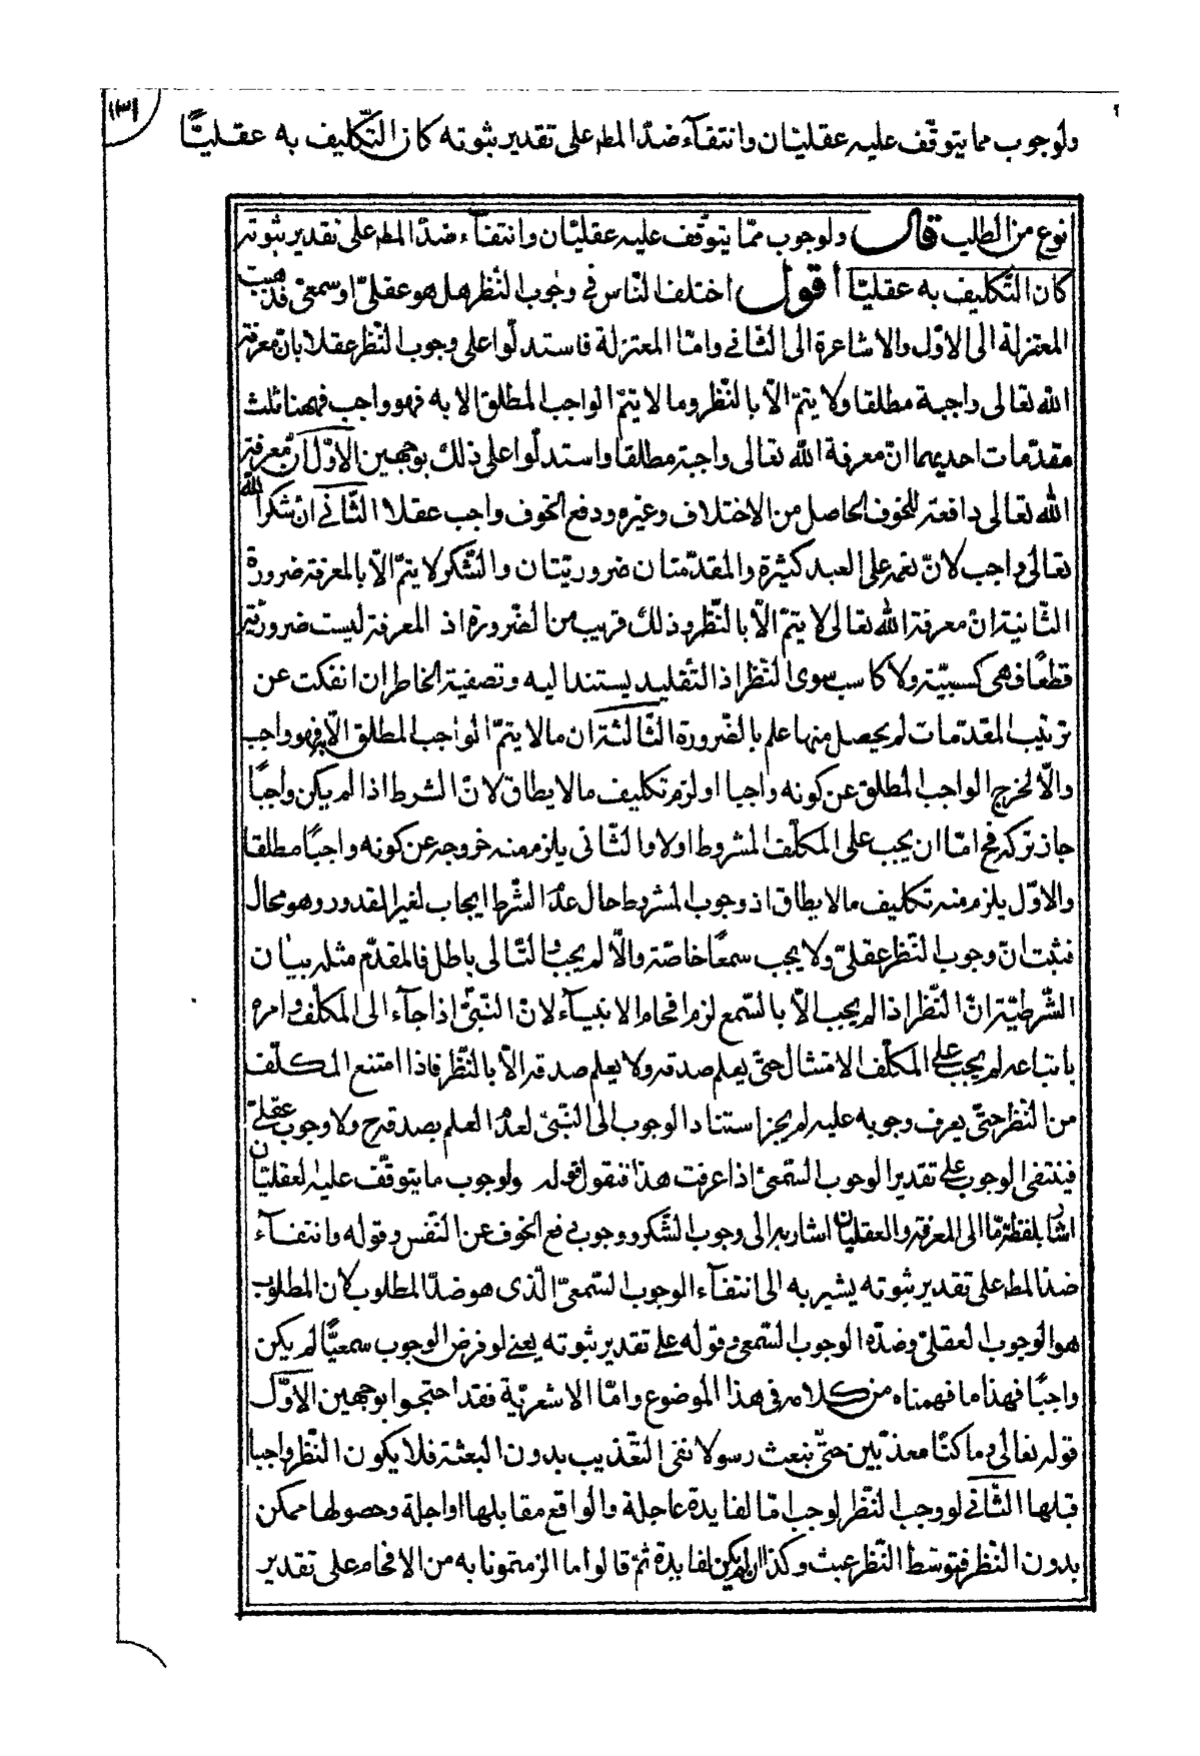 ولوجوب مما يتوقّف عليه عقليّان وانتفآء ضدّ المط على تقدير ثبوته كان التّكليف به عقليًّا
نوع من الطلب قال ولوجوب ممّا يتوقّف عليه عقليّان وانتفآء ضدّ المط على تقدير ثبوته
كان التّكليف به عقليّا أقول اختلف النّاس في وجوب النّظر هل هو عقليّ او سمعيّ فذهبت
المعتزلة الى الاوّل والاشاعرة الى الثّاني وامّا المعتزلة فاستدلّوا على وجوب النّظر عقلا بانّ معرفة
الله تعالى واجبة مطلقا ولا يتمّ الّا بالنّظر وما لا يتمّ الواجب المطلق الا به فهو واجب فهنا ثلث
مقدّمات احديهما انّ معرفة الله تعالى واجبة مطلقا واستدلّوا على ذلك بوجهين الاوّل انّ معرفة
الله تعالى دافعة للخوف الحاصل من الاختلاف وغيره ودفع الخوف واجب عقلا الثّاني انّ شكر الله
تعالى واجب لانّ نعمه على العبد كثيرة والمقدّمتان ضروريّتان والشّكر لا يتمّ الّا بالمعرفة ضرورة
الثّانية انّ معرفة الله تعالى لا يتمّ الّا بالنّظر وذلك قريب من الضّرورة اذ المعرفة ليست ضروريّة
قطعًا فهي كسبيّة ولا كاسب سوى النّظر اذ التّقليد يستند اليه وتصفية الخاطر ان انفكت عن
ترتيب المقدّمات لم يحصل منها علم بالضّرورة الثّالثة ان ما لا يتمّ الواجب المطلق الّا به فهو واجب
والّا لخرج الواجب المطلق عن كونه واجبا او لزم تكليف ما لا يطاق لانّ الشرط اذا لم يكن واجبًا
جاز تركه فح امّا ان يجب على المكلّف المشروط اولا والثّاني يلزم منه خروجه عن كونه واجبًا مطلقا
والاوّل يلزم منه تكليف ما لا يطاق اذ وجوب المشروط حال عدم الشّرط ايجاب لغير المقدور وهو محال
فثبت انّ وجوب النّظر عقليّ ولا يجب سمعًا خاصّة والّا لم يجب والتّالي باطل فالمقدّم مثله بيان
الشّرطيّة انّ النّظر اذا لم يجب الّا بالسّمع لزم افحام الانبيآء لانّ النّبيّ اذا جآء الى المكلّف وامره
باتباعه لم يجب على المكلّف الامتثال حتّى يعلم صدقه ولا يعلم صدقه الّا بالنّظر فاذا امتنع المكلّف
من النّظر حتّى يعرف وجوبه عليه لم يجز استناد الوجوب الى النّبيّ لعدم العلم بصدقه ح ولا وجوب عقليّ
فينتفي الوجوب على تقدير الوجوب السّمعيّ اذا عرفت هذا فنقول قوله ولوجوب ما يتوقّف عليه العقليّان
اشار بلفظة ما الى المعرفة والعقليّان اشار به الى وجوب الشّكر ووجوب دفع الخوف عن النّفس وقوله وانتفآء
ضدّ المط على تقدير ثبوته يشير به الى انتفآء الوجوب السّمعيّ الّذى هو ضدّ المطلوب لان المطلوب
هو الوجوب العقليّ وضدّه الوجوب السّمعي وقوله على تقدير ثبوته يعني لو فرض الوجوب سمعيًّا لم يكن
واجبًا فهذا ما فهمناه من كلامه في هذا الموضوع وامّا الاشعريّة فقد احتجوا بوجهين الاوّل
قوله تعالى وما كنّا معذّبين حتّى نبعث رسولا نفى التّعذيب بدون البعثة فلا يكون النّظر واجبا
قبلها الثّاني لو وجب النّظر لوجب امّا لفايدة عاجلة والواقع مقابلها او اجلة وحصولها ممكن
بدون النّظر فتوسّط النّظر عبث وكذا ان لم يكن لفايدة ثمّ قالوا ما الزمتمونا به من الافحام على تقدير